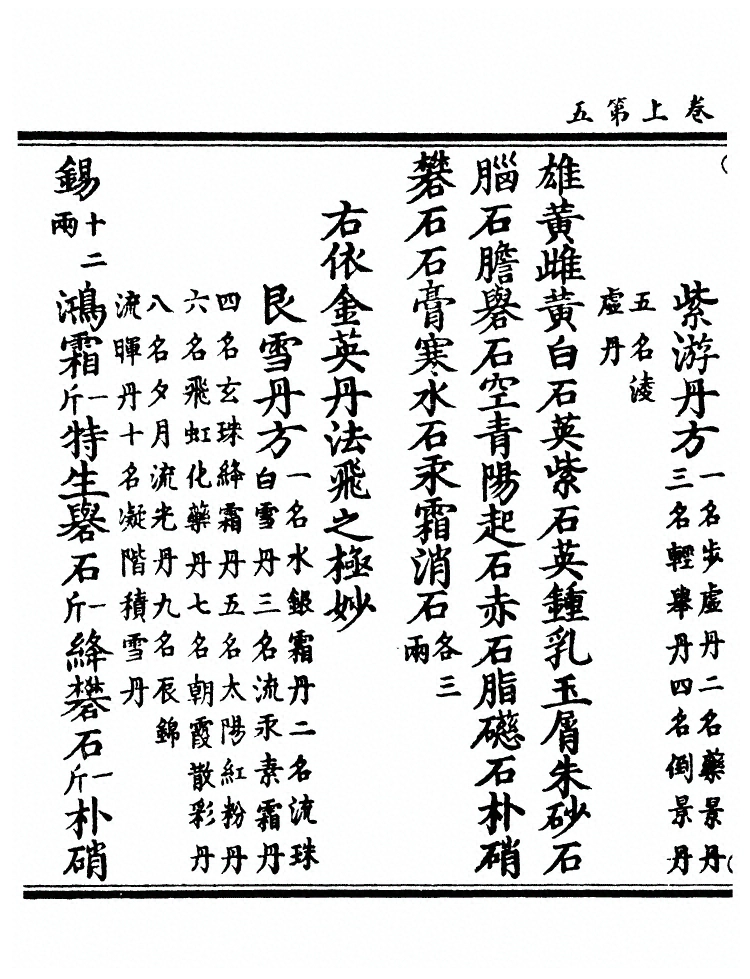 卷上第五
紫游丹方一名步虛丹二名藥景丹
三名輕舉丹四名倒景丹
五名淩
虛丹
雄黃雌黃白石英紫石英鍾乳玉屑朱砂石
腦石膽礜石空青陽起石赤石脂礠石朴硝
礬石石膏寒水石汞霜消石各三
兩
右依金英丹法飛之極妙
艮雪丹方一名水銀霜丹二名流珠
白雪丹三名流汞素霜丹
四名玄珠絳霜丹五名太陽紅粉丹
六名飛虹化藥丹七名朝霞散彩丹
八名夕月流光丹九名辰錦
流暉丹十名凝階積雪丹
錫十二
兩鴻霜一
斤特生礜石一
斤絳礬石一
斤朴硝